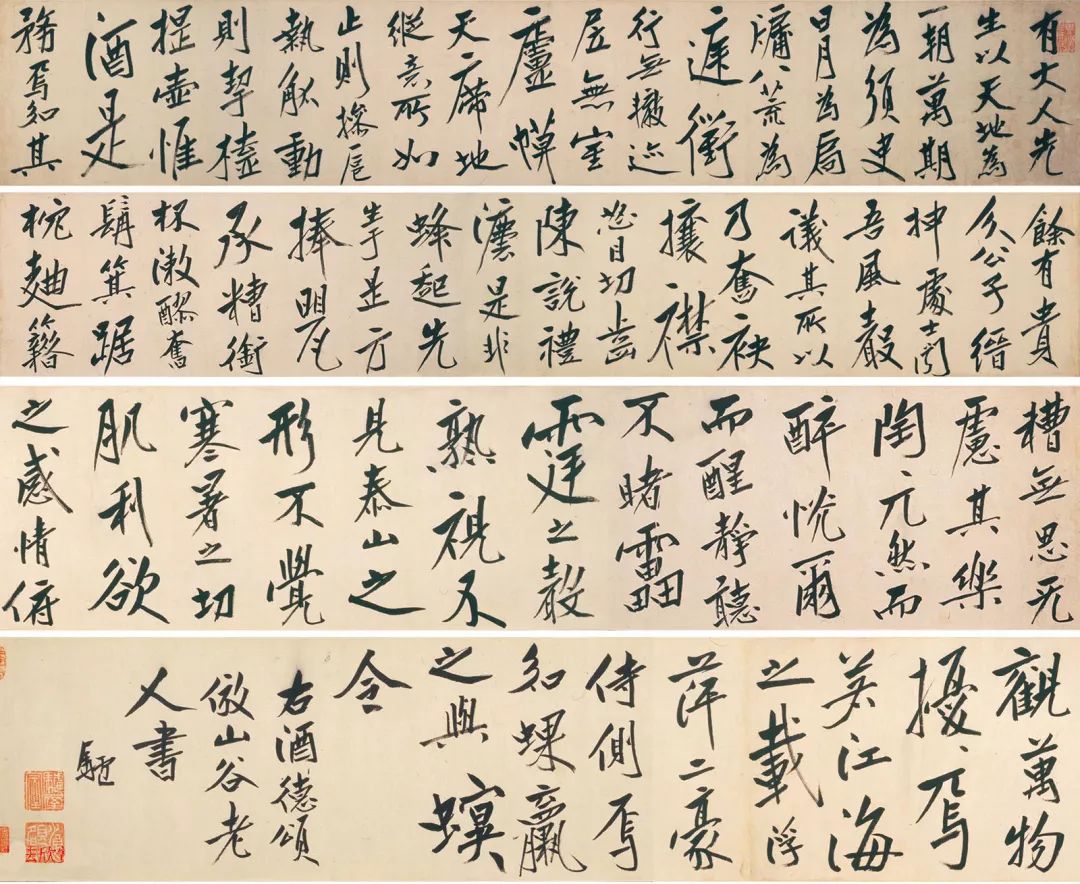 有大人先
生以天地為
一朝萬期
為須臾
日月為扃
牖八荒為
庭衢
行無轍迹
居無室
廬幙
天席地
縱意所如
止則操卮
執觚動
則挈榼
提壺惟
酒是
務焉知其
餘有貴
介公子縉
紳處士聞
吾風聲
議其所以
乃奮袂
攘襟
怒目切齒
陳說禮
灋是非
蜂起先
生於是方
捧甖
承糟銜
杯漱醪奮
髯箕踞
枕麯籍
糟無思无
慮其樂
陶〻兀然而
醉恍爾
而醒靜聽
不睹雷
霆之聲
熟視不
見泰山之
形不覺
寒暑之切
肌利欲
之感情俯
觀萬物
擾〻焉
若江海
之載浮
萍二豪
侍側焉
如蜾蠃
之與螟
令
右酒德頌
倣山谷老
人書